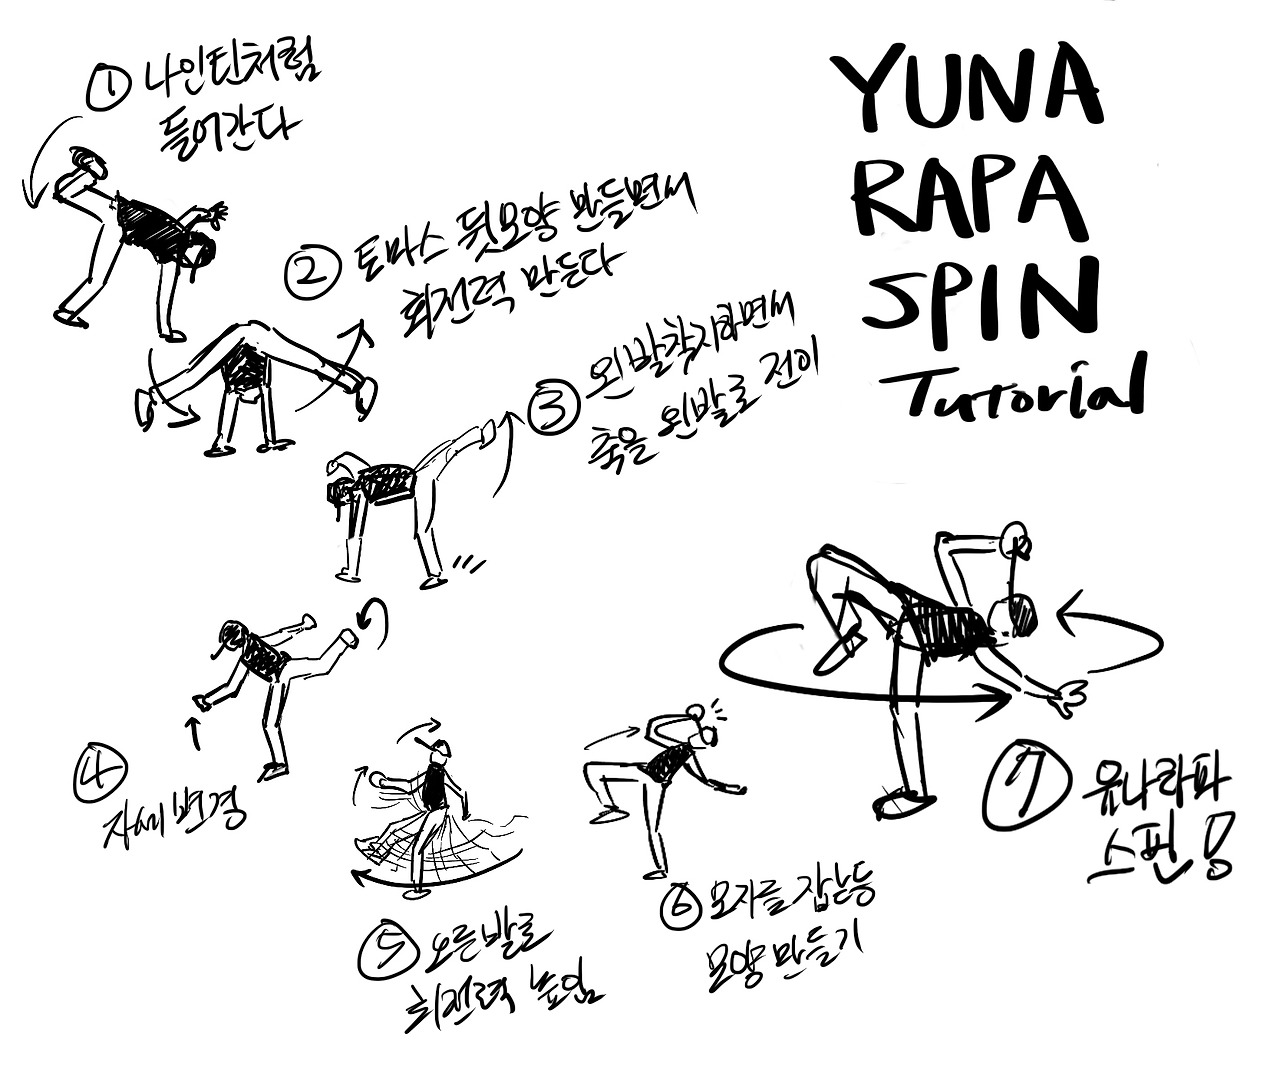 YUNA
RAPA
SPIN
Tutorial
① 나인틴처럼
들어간다
② 토마스 뒷모양 만들면서
회전력 만든다
③ 왼발착지하면서
축을 왼발로 전이
④
자세변경
⑤ 오른발로
회전력 높임
⑥ 모자를 잡는등
모양만들기
⑦ 유나라파
스핀!